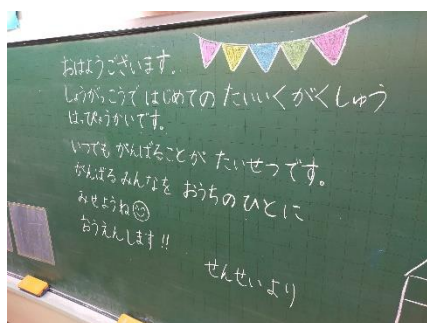 おはようございます。
しょうがっこうで はじめての たいいくがくしゅう
はっぴょうかいです。
いつでも がんばることが たいせつです。
がんばる みんなを おうちのひとに
みせようね
おうえんします!!
せんせいより